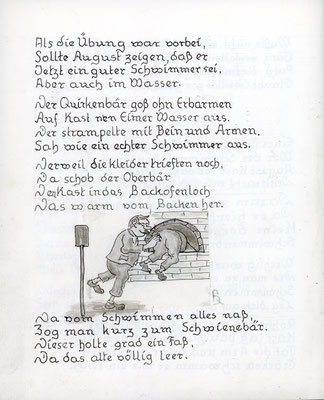 Als die Übung war vorbei,
Sollte August zeigen, daß er
Jetzt ein guter Schwimmer sei,
Aber auch im Wasser.
Der Quirkenbär goß ohn Erbarmen
Auf Kast nen Eimer Wasser aus.
Der strampelte mit Bein und Armen,
Sah wie ein echter Schwimmer aus.
Derweil die kleider trieften noch,
Da schob der Oberbär
Den Kast in das Backofenloch
Das warm vom Backen her.
Da vom Schwimmen alles naß,
Zog man kurz zum Schwienebär.
Dieser holte grad ein Faß,
Da das alte völlig leer.